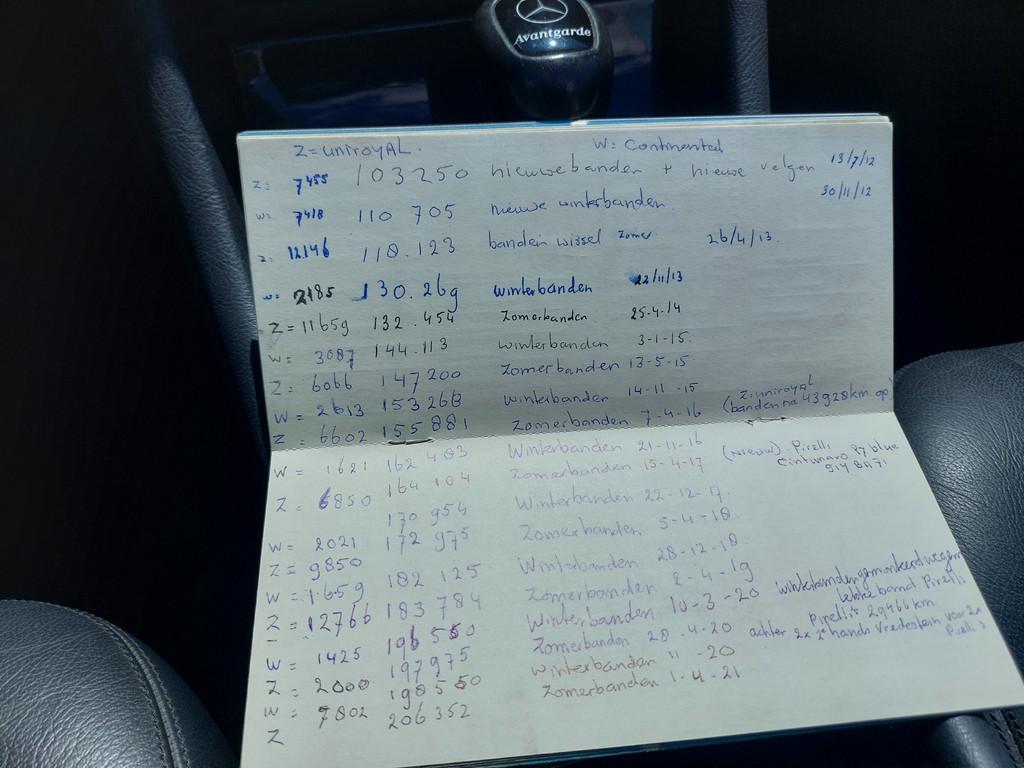 Avantgarde
Z = UNIROYAL. W: Continental
Z: 7455 103250 nieuwe banden + nieuwe velgen 13/7/12
W: 7418 110 705 nieuwe winterbanden. 30/11/12
Z: 12.146 118.123 banden wissel zomer 26/4/13.
W: 2185 130.269 winterbanden 22/11/13
Z = 11659 132.454 Zomerbanden 25-4-14
W = 3087 144.113 winterbanden 3-1-15
Z = 6066 147200 Zomerbanden 13-5-15
W = 2613 153268 winterbanden 14-11-15 Z: uniroyal
Z = 6602 155881 Zomerbanden 7-4-16 (banden na 43928km op)
W = 1621 162 483 Winterbanden 21-11-16
Z = 6850 164 104 Zomerbanden 15-4-17 (Nieuw) Pirelli
Cinturato P7 blue
170 954 Winterbanden 22-12-17.
W = 2021 172 975 Zomerbanden 5-4-18.
Z = 9850
W = 1.659 182 125 Winterbanden 28-12-18
Z = 12766 183 784 Zomerbanden 2-4-19
196 550 Winterbanden 10-3-20 winterbanden gemonteerd wegens
lekke band Pirelli
Pirelli's 29466km
W = 1425 197975 Zomerbanden 28.4-20 achter 2x 2e hands Vredestein voor 2x
Pirelli's
Z = 2000 198550 winterbanden 11-20
W = 7802 206352 Zomerbanden 1-4-21
Z